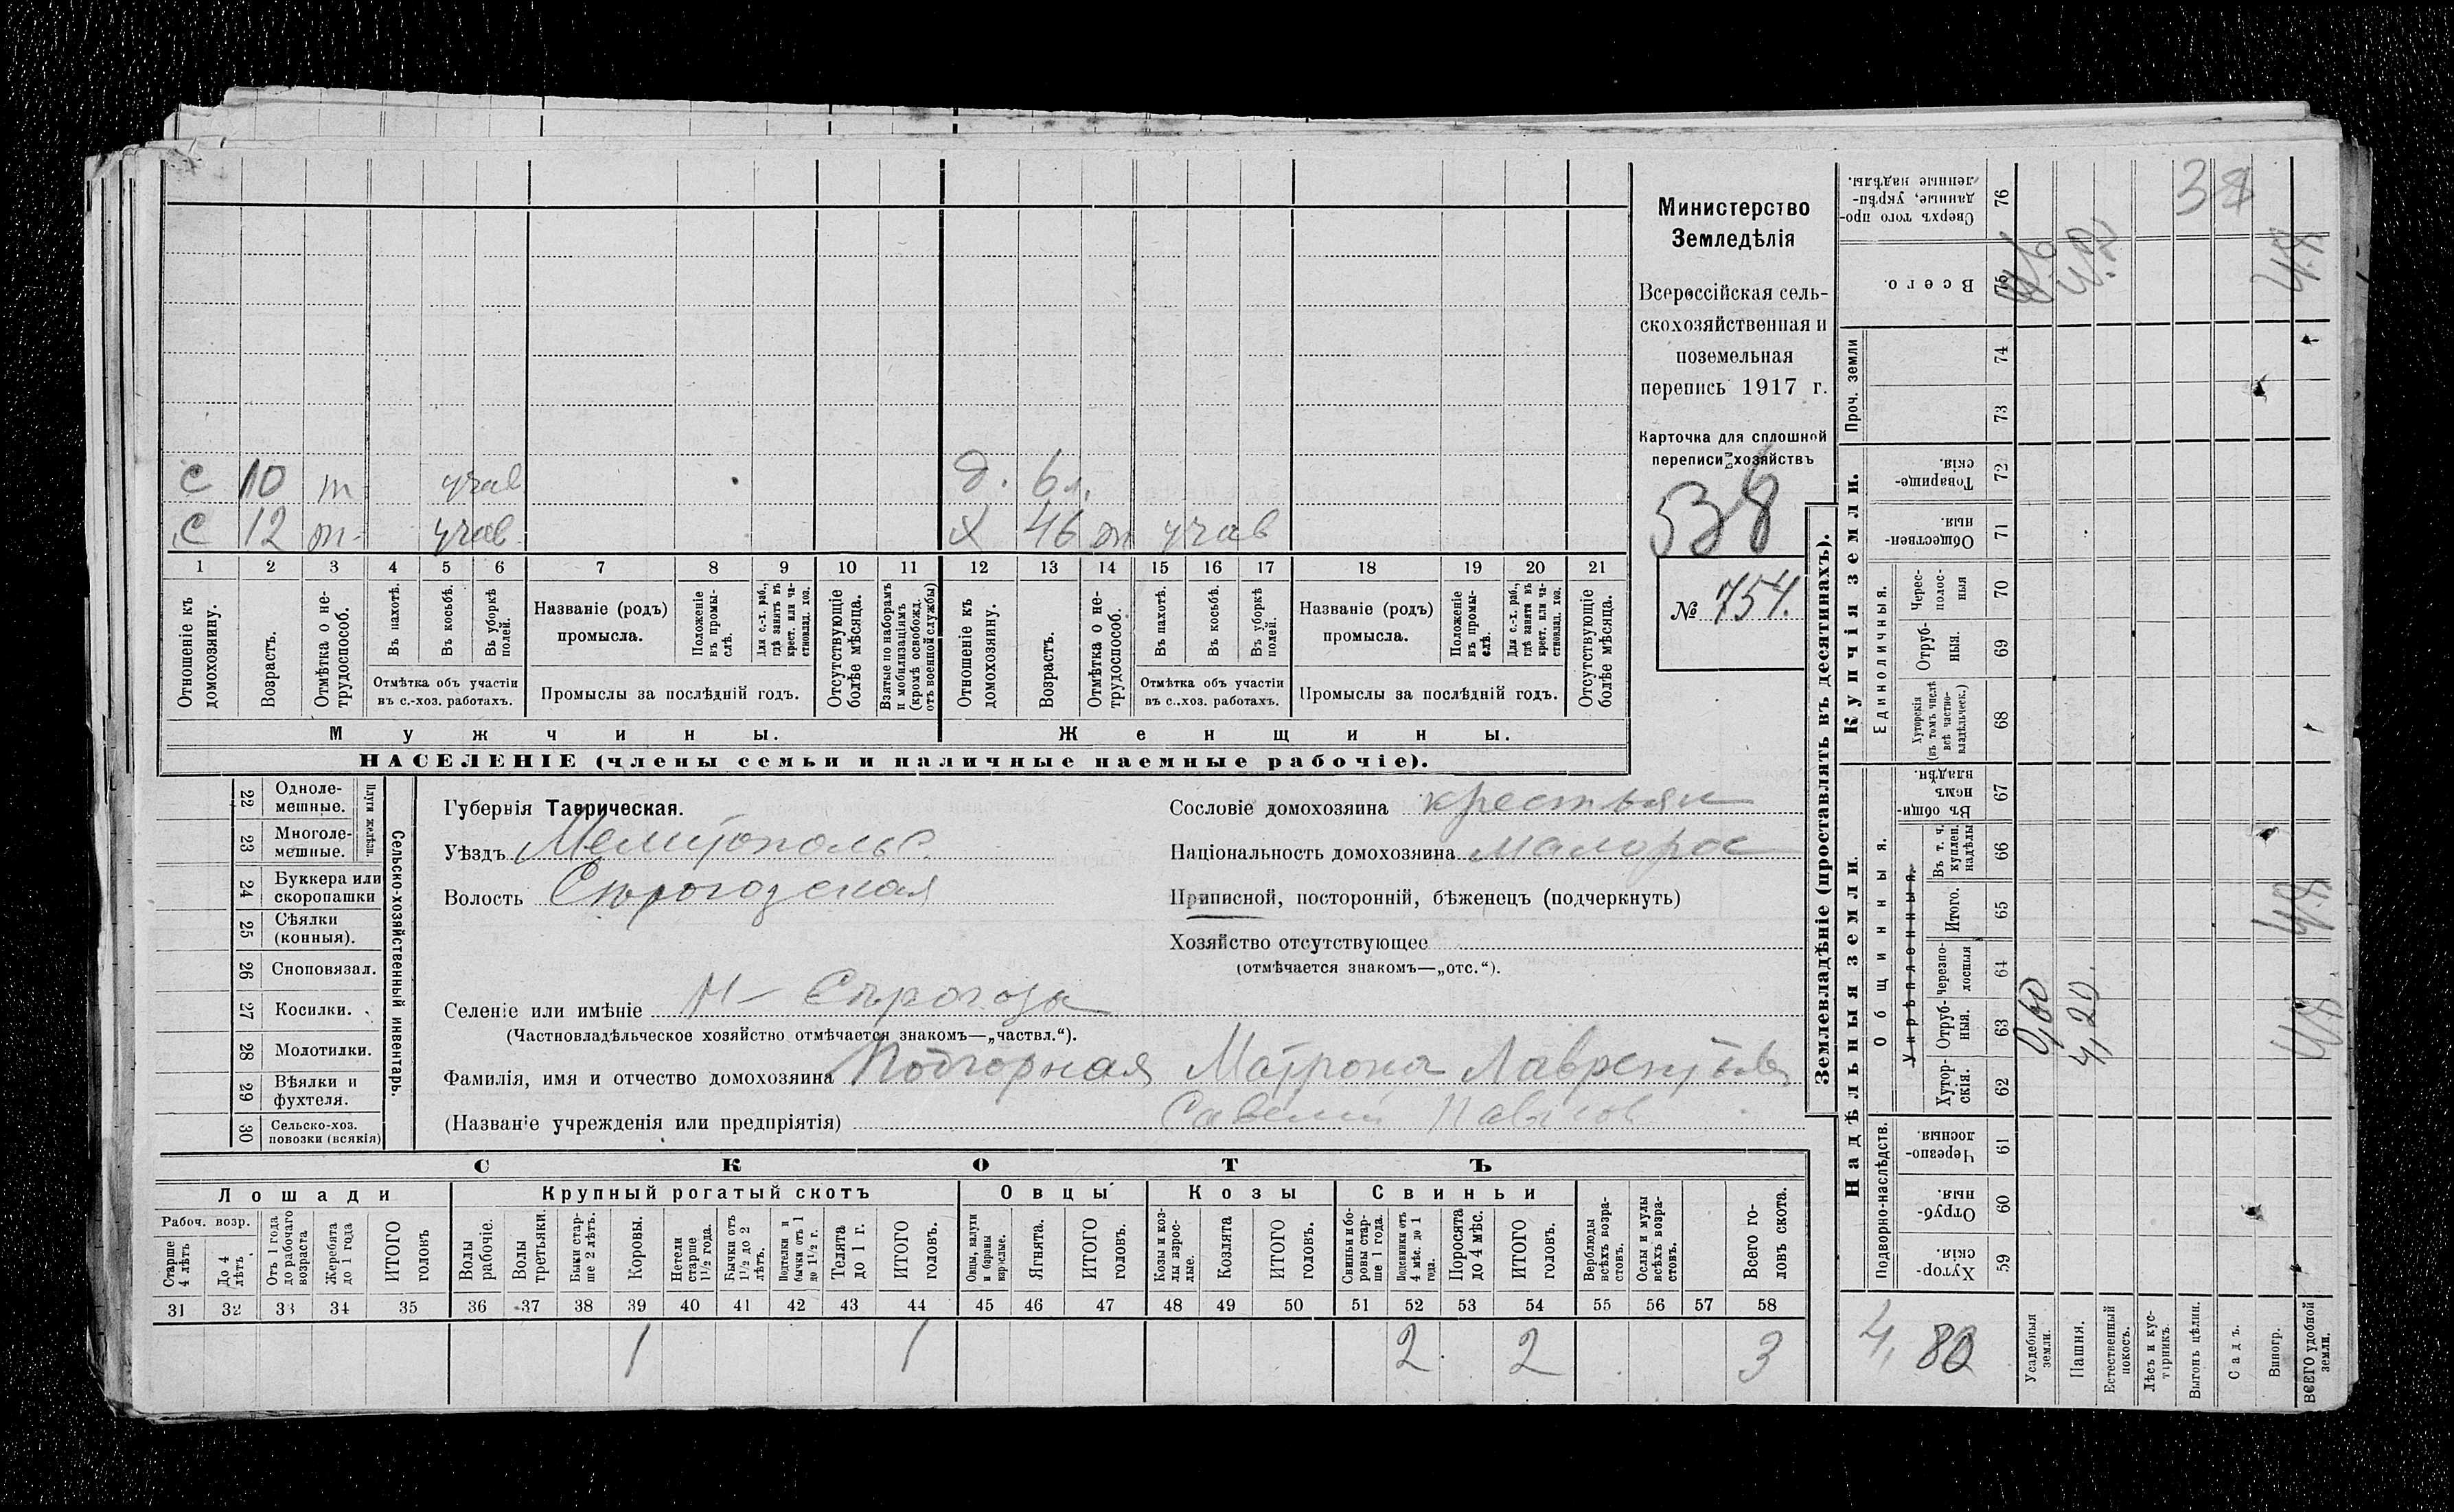 с 10 т учав д. 6 л.
с 12 т учав х 46 т учав
1 2 3 4 5 6 7 8 9 10 11 12 13 14 15 16 17 18 19 20 21
Отношеніе къ домохозяину.
Возрастъ.
Отмѣтка о нетрудоспособ.
Въ пахотѣ.
Въ косьбѣ.
Въ уборкѣ полей.
Отмѣтка объ участіи въ с.-хоз. работахъ.
Названіе (родъ) промысла.
Положеніе въ промыслѣ.
Для с.-х. раб., гдѣ занятъ въ крест. или частновлад. хоз.
Промыслы за послѣдній годъ.
Отсутствующіе болѣе мѣсяца.
Взятые по наборамъ и мобилизаціямъ (кромѣ освобожд. отъ военной службы)
Отношеніе къ домохозяину.
Возрастъ.
Отмѣтка о нетрудоспособ.
Въ пахотѣ.
Въ косьбѣ.
Въ уборкѣ полей.
Отмѣтка объ участіи въ с.-хоз. работахъ.
Названіе (родъ) промысла.
Положеніе въ промыслѣ.
Для с.-х. раб., гдѣ занятъ въ крест. или частновлад. хоз.
Промыслы за послѣдній годъ.
Отсутствующіе болѣе мѣсяца.
Мужчины.
Женщины.
НАСЕЛЕНІЕ (члены семьи и наличные наемные рабочіе).
Министерство
Земледѣлія
Всероссійская сель-
скохозяйственная и
поземельная
перепись 1917 г.
Карточка для сплошной
переписи хозяйствъ
538
№ 754.
22 Одноле-
мешные.
23 Многоле-
мешные.
Плуги желѣзн.
24 Буккера или
скоропашки
25 Сѣялки
(конныя).
26 Сноповязал.
27 Косилки.
28 Молотилки.
29 Вѣялки и
фухтеля.
30 Сельско-хоз.
повозки (всякія)
Сельско-хозяйственный инвентарь.
Губернія Таврическая.
Уѣздъ Мелитопольс.
Волость Сѣрогозская
Селеніе или имѣніе Н- Сѣрогоза
(Частновладѣльческое хозяйство отмѣчается знакомъ—„частвл.“).
Фамилія, имя и отчество домохозяина Подгорная Матрона Лаврентьев
(Названіе учрежденія или предпріятія) Савелій Павлов
Сословіе домохозяина крестьян
Національность домохозяина малорос
Приписной, посторонній, бѣженецъ (подчеркнуть)
Хозяйство отсутствующее
(отмѣчается знакомъ—„отс.“).
СКОТЪ
Лошади Крупный рогатый скотъ Овцы Козы Свиньи
Рабоч. возр.
Старше 4 лѣтъ
До 4 лѣтъ.
Отъ 1 года до рабочаго возраста
Жеребята до 1 года
ИТОГО головъ
Волы рабочіе.
Волы третьяки.
Быки старше 2 лѣтъ.
Коровы.
Нетели старше 1½ года.
Бычки отъ 1½ до 2 лѣтъ.
Подтелки и бычки отъ 1 до 1½ г.
Телята до 1 г.
ИТОГО головъ.
Овцы, валухи и бараны взрослые.
Ягнята.
ИТОГО головъ.
Козы и козлы взрослые.
Козлята
ИТОГО головъ.
Свиньи и боровы старше 1 года.
Подсвинки отъ 4 мѣс. до 1 года.
Поросята до 4 мѣс.
ИТОГО головъ.
Верблюды всѣхъ возрастовъ.
Ослы и мулы всѣхъ возрастовъ.
Всего головъ скота.
31 32 33 34 35 36 37 38 39 40 41 42 43 44 45 46 47 48 49 50 51 52 53 54 55 56 57 58
1 1 2 2 3
Землевладѣніе (проставлять въ десятинахъ).
Купчія земли.
Надѣльныя земли.
Сверхъ того проданные, укрѣпленные надѣлы. 76
38
Всего. 75
Проч. земли 74 73
Товарищескія. 72
Общественныя. 71
Единоличныя.
Чересполосныя 70
Отрубныя. 69
Хуторскія (въ томъ числѣ всѣ частновладѣльческ.) 68
Въ общемъ владѣн. 67
Общинныя.
Укрѣпленныя.
Въ т. ч. куплен. надѣлы 66
Итого. 65
Черезполосныя 64
Отрубныя. 63
Хуторскія. 62
0,60
4,20.
Подворно-наслѣдств.
Черезполосныя. 61
Отрубныя. 60
Хуторскія. 59
4,80
Усадебныя земли.
Пашня.
Естественный покосъ.
Лѣсъ и кустарникъ.
Выгонъ цѣлин.
Садъ.
Виногр.
ВСЕГО удобной земли.